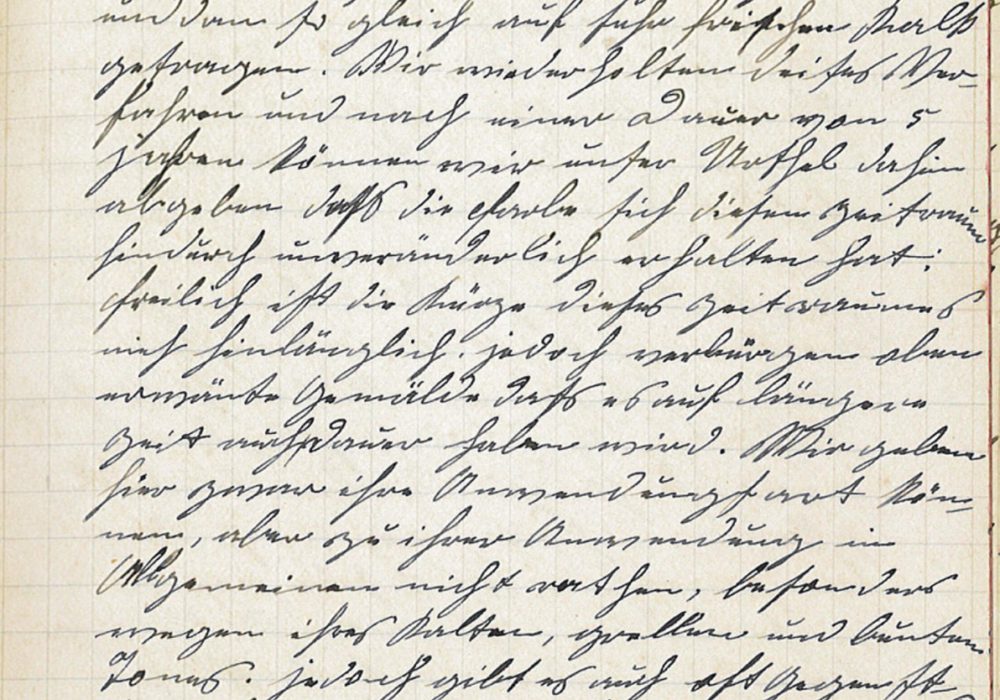 und dan so gleich auf sehr frischen Kalk
getragen. Wir wiederholten deises Ver-
fahren und nach einer Dauer von 5
jahren können wir unser Urthel dahin
abgeben daß die Farbe sich diesen Zeitraum
hindurch unveränderlich erhalten hat;
freilich ist die Kürze dieses Zeitraumes
nich hinlänglich. jedoch verbürgen oben
erwänte Gemälde daß es auf längere
Zeit auch dauer haben wird. Wir geben
hier zwar ihre Anwendungsart kön-
nen, aber zu ihrer Anwendung in
Allgemeinen nicht rathen, besonders
wegen ihres Kalten, grellen und bunten
Tones. jedoch gibt es auch oft